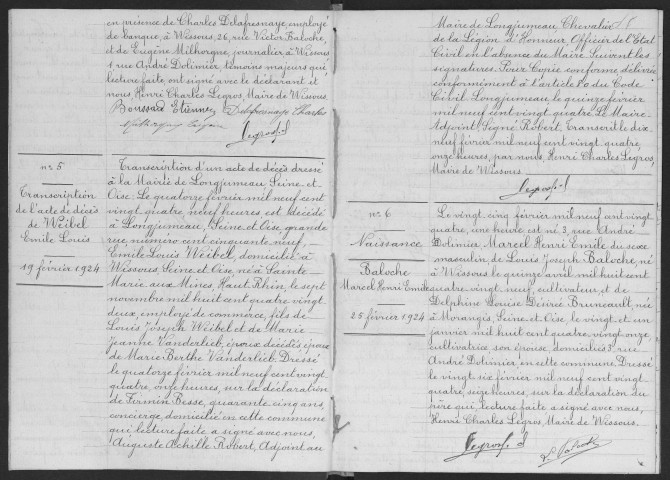 en présence de Charles Delafresnaye, employé
de banque, à Wissous, 26, rue Victor Baloche,
et de Eugène Milhorgne, journalier à Wissous
1, rue André Dolimier, témoins majeurs qui,
lecture faite, ont signé avec le déclarant et
nous Henri Charles Legros, Maire de Wissous.
Boussard Etienne Delafresnaye Charles
Legros
n° 5
Transcription
de l'acte de décès
de Weibel
Emile Louis
19 février 1924
Transcription d'un acte de décès dressé
à la Mairie de Longjumeau, Seine-et-
Oise. Le quatorze février mil neuf cent
vingt quatre, neuf heures, est décédé
à Longjumeau, Seine-et-Oise, grande
rue numéro cent cinquante neuf,
Emile Louis Weibel, domicilié à
Wissous, Seine-et-Oise, né à Sainte-
Marie aux Mines, Haut-Rhin, le sept
novembre mil huit cent quatre vingt
deux, employé de commerce, fils de
Louis Joseph Weibel et de Marie
Jeanne Vanderlieb, époux décédés, époux
de Marie Berthe Vanderlieb. Dressé
le quatorze février mil neuf cent vingt
quatre, onze heures, sur la déclaration
de Firmin Besse, quarante cinq ans,
concierge, domicilié en cette commune
qui lecture faite a signé avec nous,
Auguste Achille Robert, Adjoint au
Maire de Longjumeau, Chevalier
de la Légion d'Honneur, Officier de l'Etat
Civil en l'absence du Maire. Suivent les
signatures. Pour Copie conforme, délivrée
conformément à l'article 80 du Code
Civil. Longjumeau, le quinze février
mil neuf cent vingt quatre. Le Maire-
Adjoint, Signé Robert. Transcrit le dix
neuf février mil neuf cent vingt quatre,
onze heures, par nous, Henri Charles Legros,
Maire de Wissous.
Legros
n° 6
Naissance
Baloche
Marcel Henri Emile
25 février 1924
Le vingt cinq février mil neuf cent vingt
quatre, une heure, est né, 3, rue André
Dolimier Marcel Henri Emile du sexe
masculin, de Louis Joseph Baloche, né
à Wissous le quinze avril mil huit cent
quatre vingt neuf, cultivateur, et de
Delphine Louise Désirée Bruneault, née
à Morangis, Seine-et-Oise, le vingt et un
janvier mil huit cent quatre vingt onze
cultivatrice son épouse, domiciliés 3, rue
André Dolimier en cette commune. Dressé
le vingt six février mil neuf cent vingt
quatre, seize heures, sur la déclaration du
père qui, lecture faite a signé avec nous,
Henri Charles Legros, Maire de Wissous.
Legros L. Baloche